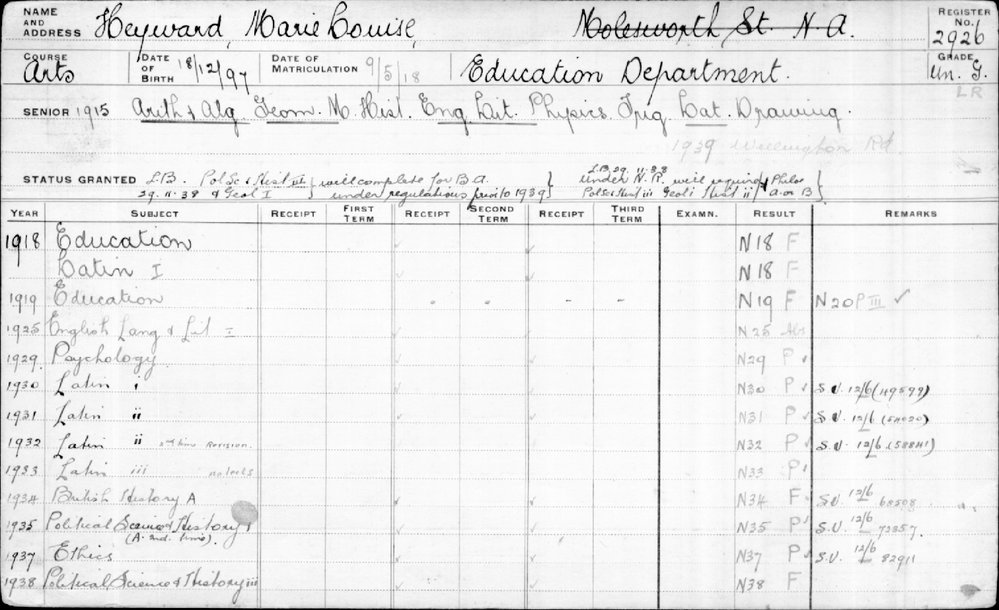 NAME AND ADDRESS Heyward, Marie Louise, Molesworth St. N.A. REGISTER No. 2926
COURSE Arts DATE OF BIRTH 18/12/97 DATE OF MATRICULATION 9/5/18 Education Department. GRADE Un. G.
LR
SENIOR 1915 Arith & Alg. Geom. M. Hist. Eng. Lit. Physics. Trig. Lat. Drawing.
1939 Wellington Rd
STATUS GRANTED L.B. Pol Sc & Hist III } will complete for B A. L.B. 29.11.38 under N.R. will require Philos
29.11.38 & Geol I } under regulations prior to 1939} Pol Sc & Hist iii Geol i Hist ii A or B}
YEAR SUBJECT RECEIPT FIRST TERM RECEIPT SECOND TERM RECEIPT THIRD TERM EXAMN. RESULT REMARKS
1918 Education N18 F
Latin I N18 F
1919 Education N19 F N20 P III ✓
1925 English Lang & Lit I N25 Abs
1929. Psychology N29 P ✓
1930 Latin i N30 P ✓ S.V. 12/6 (49599)
1931 Latin ii N31 P ✓ S.V. 12/6 (54020)
1932 Latin ii 2nd time Revision. N32 P ✓ S.V. 12/6 (58841)
1933 Latin iii no lects N33 P ✓
1934 British History A N34 F S.V. 12/6 68508
1935 Political Science & History
(A. 2nd. time). N35 P ✓ S.V. 12/6 73857
1937 Ethics N37 P ✓ S.V. 12/6 82911
1938 Political Science & History iii N38 F